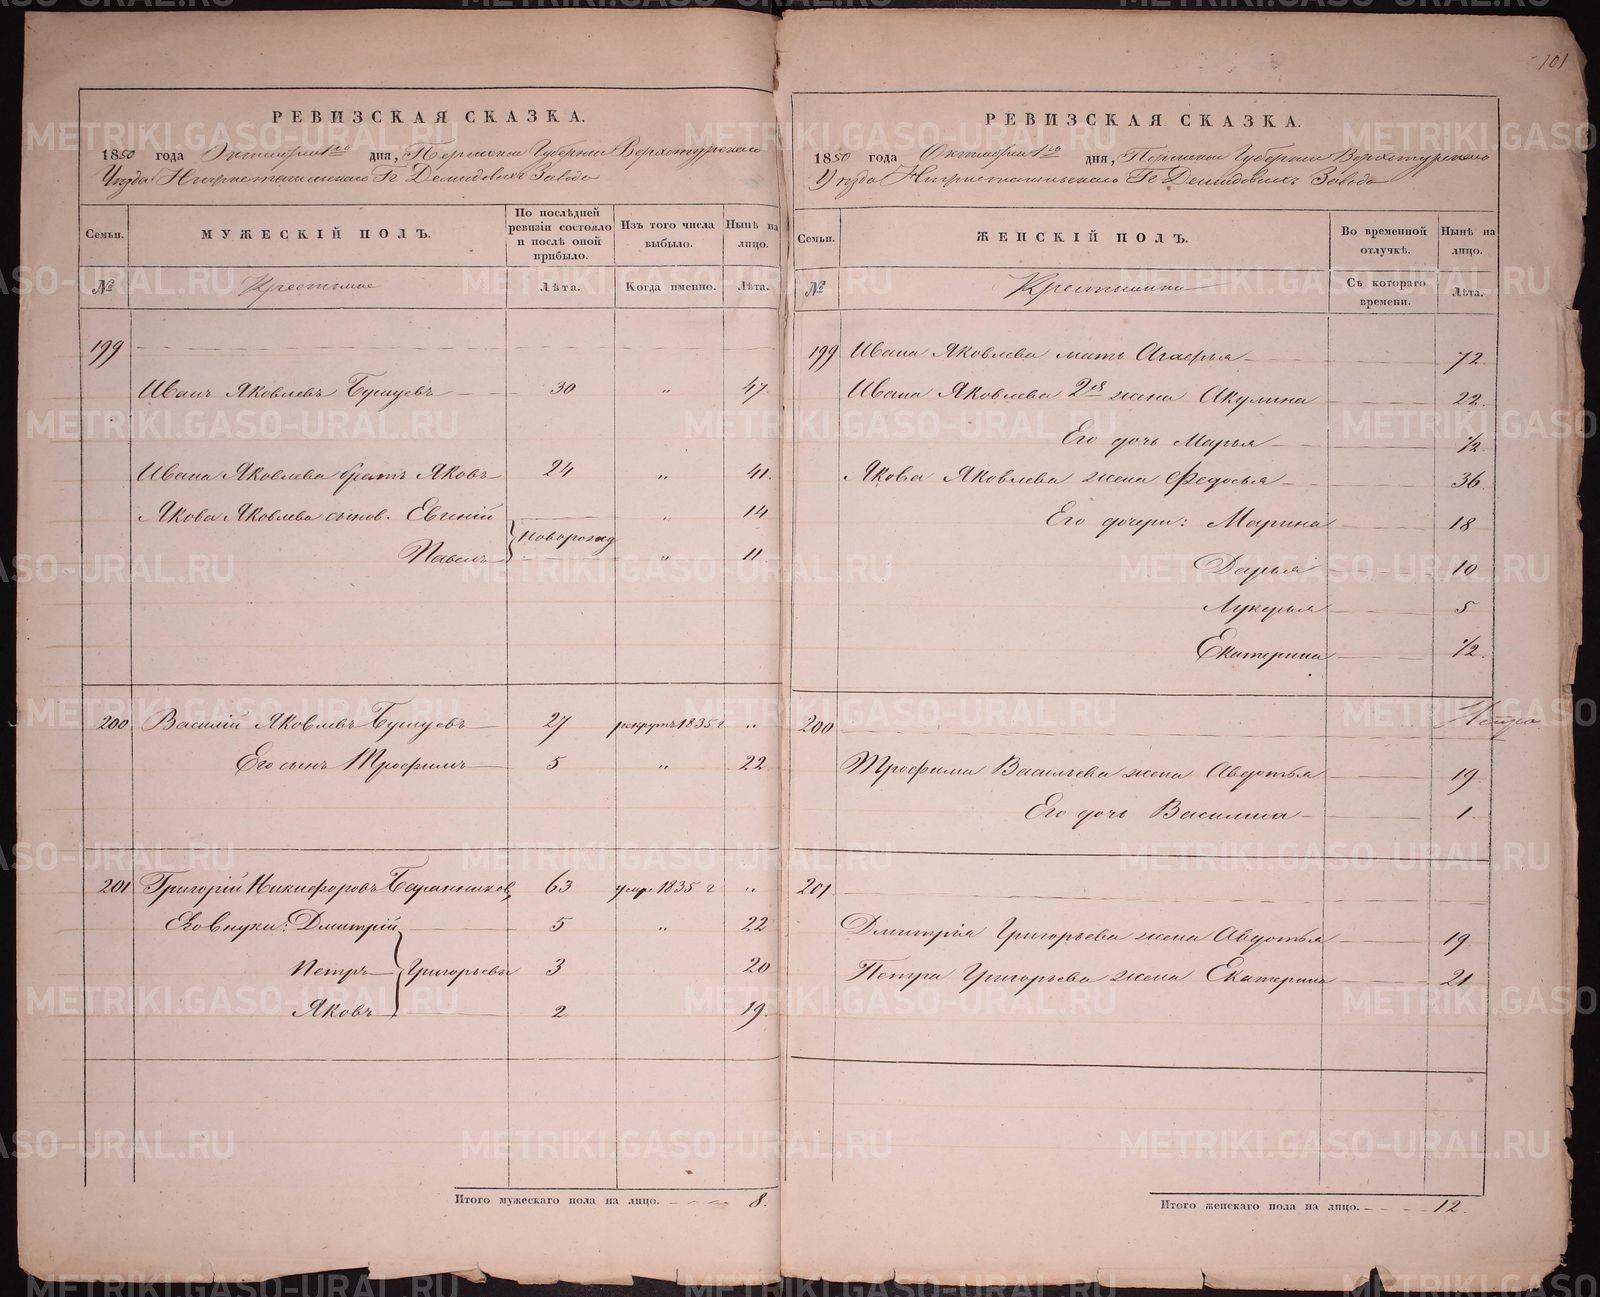 101
РЕВИЗСКАЯ СКАЗКА.
1850 года Октября 1го дня, Пермской Губернии Верхотурскаго
Уезда Нижнетагильскаго Гг Демидовыхъ Завода
Семьи.
МУЖЕСКІЙ ПОЛЪ.
По послѣдней ревизіи состояло и послѣ оной прибыло.
Изъ того числа выбыло.
Нынѣ на лицо.
№
Крестьяне
Лѣта.
Когда именно.
Лѣта.
199
Иванъ Яковлевъ Бушуевъ 30 " 47
Ивана Яковлева братъ Яковъ 24 " 41
Якова Яковлева сынов. Евгеній " 14
новорожд
Павелъ " 11
200 Василій Яковлевъ Бушуевъ 27 рекрутъ 1835 г "
Его сынъ Трофимъ 5 " 22
201 Григорій Никифоровъ Баранниковъ 63 умр. 1835 г "
Его внуки: Дмитрій 5 " 22
Петръ Григорьевы 3 20
Яковъ 2 19
Итого мужескаго пола на лицо. 8.
РЕВИЗСКАЯ СКАЗКА.
1850 года Октября 1го дня, Пермской Губернии Верхотурскаго
Уезда Нижнетагильскаго Гг Демидовыхъ Завода
Семьи.
ЖЕНСКІЙ ПОЛЪ.
Во временной отлучкѣ.
Нынѣ на лицо.
№
Крестьянки
Съ котораго времени.
Лѣта.
199 Ивана Яковлева мать Агафья 72
Ивана Яковлева 2я жена Акулина 22
Его дочь Марья 1/2
Якова Яковлева жена Федосья 36
Его дочери: Марина 18
Дарья 10
Лукерья 5
Екатерина 1/2
200
Трофима Васильева жена Авдотья 19
Его дочь Василиса 1
201
Дмитрія Григорьева жена Авдотья 19
Петра Григорьева жена Екатерина 21
Итого женскаго пола на лицо. 12.
METRIKI.GASO-URAL.RU